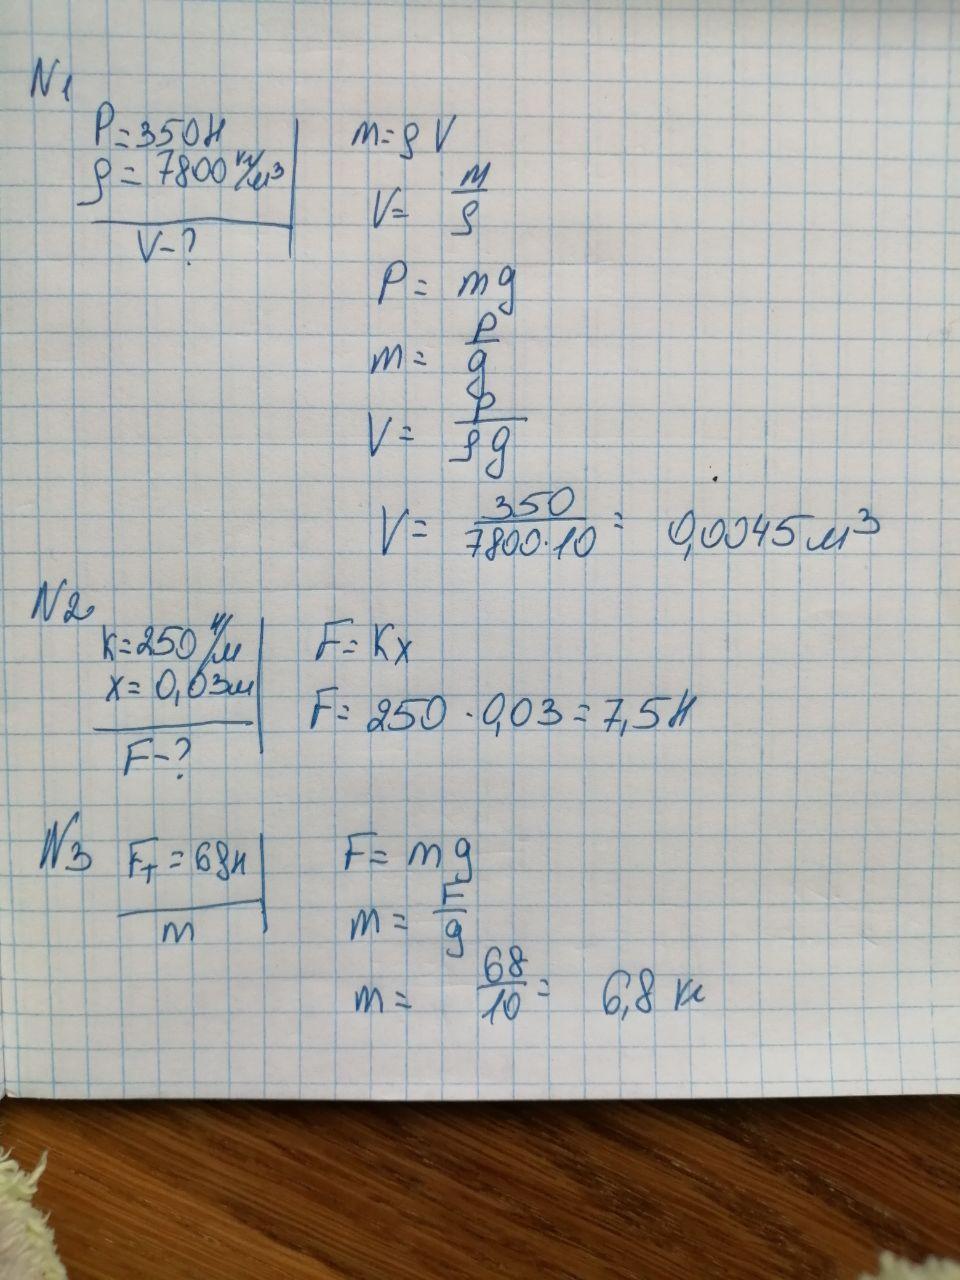 N1
P=350Н
ρ = 7800 кг/м³
V-?
m=ρV
V= m/ρ
P= mg
m= P/g
V= P/ρg
V= 350/7800·10 = 0,0045м³
N2
k=250 Н/м
x= 0,03м
F-?
F= Kx
F= 250 · 0,03 = 7,5Н
N3
Fт = 68н
m
F= mg
m= F/g
m= 68/10 = 6,8 кг